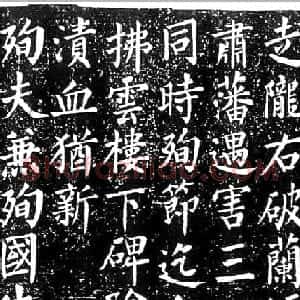 走隴右破蘭
肅藩遇害三
同時殉節迄
拂雲樓下碑
漬血猶新
殉夫兼殉國